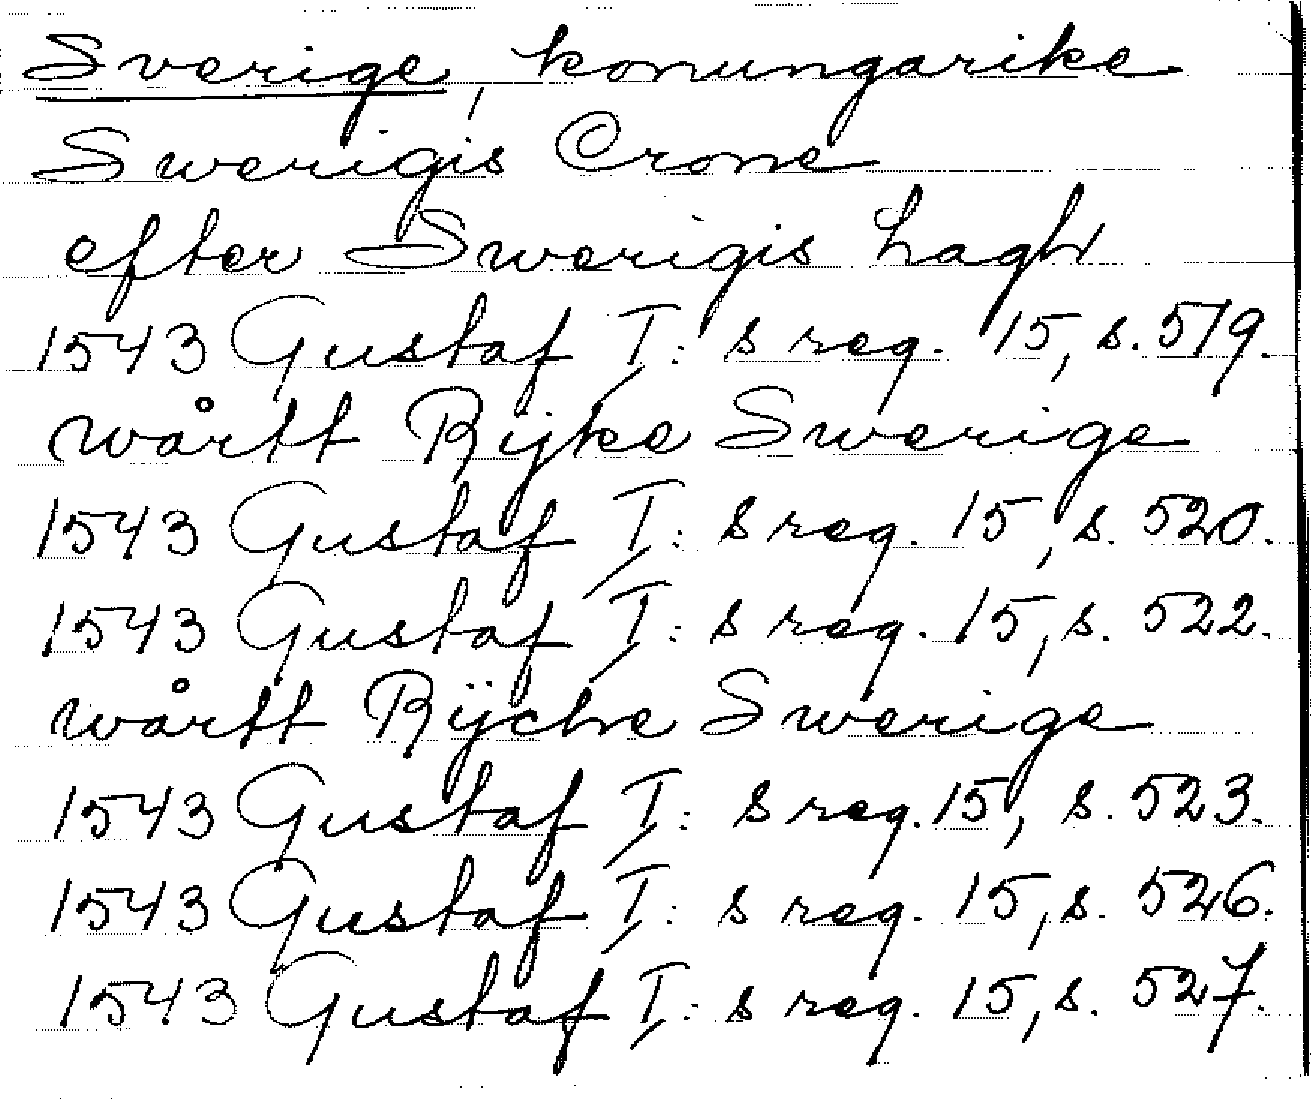 Sverige, konungarike
Swerigis Crone
efter Swerigis Lagh
1543 Gustaf I:s reg. 15, s. 519.
wårtt Rijke Swerige
1543 Gustaf I:s reg. 15, s. 520.
1543 Gustaf I:s reg. 15, s. 522.
wårtt Rÿche Swerige
1543 Gustaf I:s reg. 15, s. 523.
1543 Gustaf I:s reg. 15, s. 526.
1543 Gustaf I:s reg. 15, s. 527.